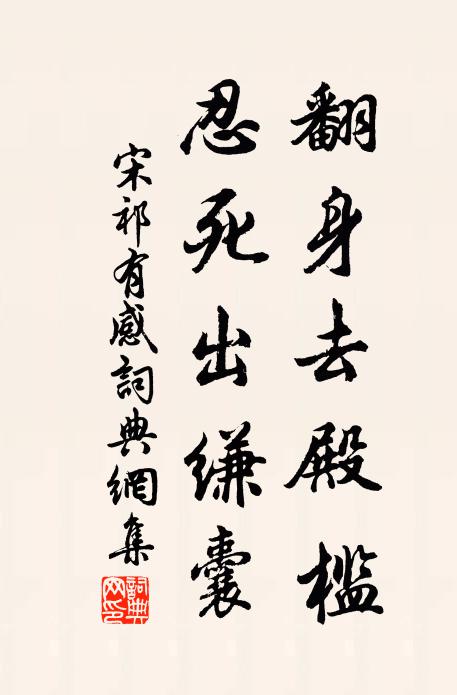 翻身去殿檻
忍死出縑囊
宋祁有感詞典網集
詞典
网印